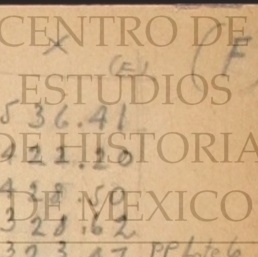 CENTRO DE
x
(E) (F
ESTUDIOS
536.41
DE HISTORIA
422.20
428.50
DE MEXICO
328.62
323.47